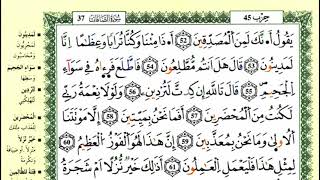 حزب 45
سُورَةُ الصَّافَّاتِ
37
يَقُولُ أَءِنَّكَ لَمِنَ الْمُصَدِّقِينَ 52 أَءِذَا مِتْنَا وَكُنَّا تُرَابًا وَعِظَامًا إِنَّا
لَمَدِينُونَ 53 قَالَ هَلْ أَنتُم مُّطَّلِعُونَ 54 فَاطَّلَعَ فَرَءَاهُ فِي سَوَآءِ
الْجَحِيمِ 55 قَالَ تَاللَّهِ إِن كِدتَّ لَتُرْدِينِ 56 وَلَوْلَا نِعْمَةُ رَبِّي
لَكُنتُ مِنَ الْمُحْضَرِينَ 57 أَفَمَا نَحْنُ بِمَيِّتِينَ 58 إِلَّا مَوْتَتَنَا
الْأُولَىٰ وَمَا نَحْنُ بِمُعَذَّبِينَ 59 إِنَّ هَٰذَا لَهُوَ الْفَوْزُ الْعَظِيمُ 60
لِمِثْلِ هَٰذَا فَلْيَعْمَلِ الْعَامِلُونَ 61 أَذَٰلِكَ خَيْرٌ نُّزُلًا أَمْ شَجَرَةُ
لَمَدِينُونَ
سَوَاءِ الْجَحِيمِ
لَتُرْدِينِ
الْمُحْضَرِينَ